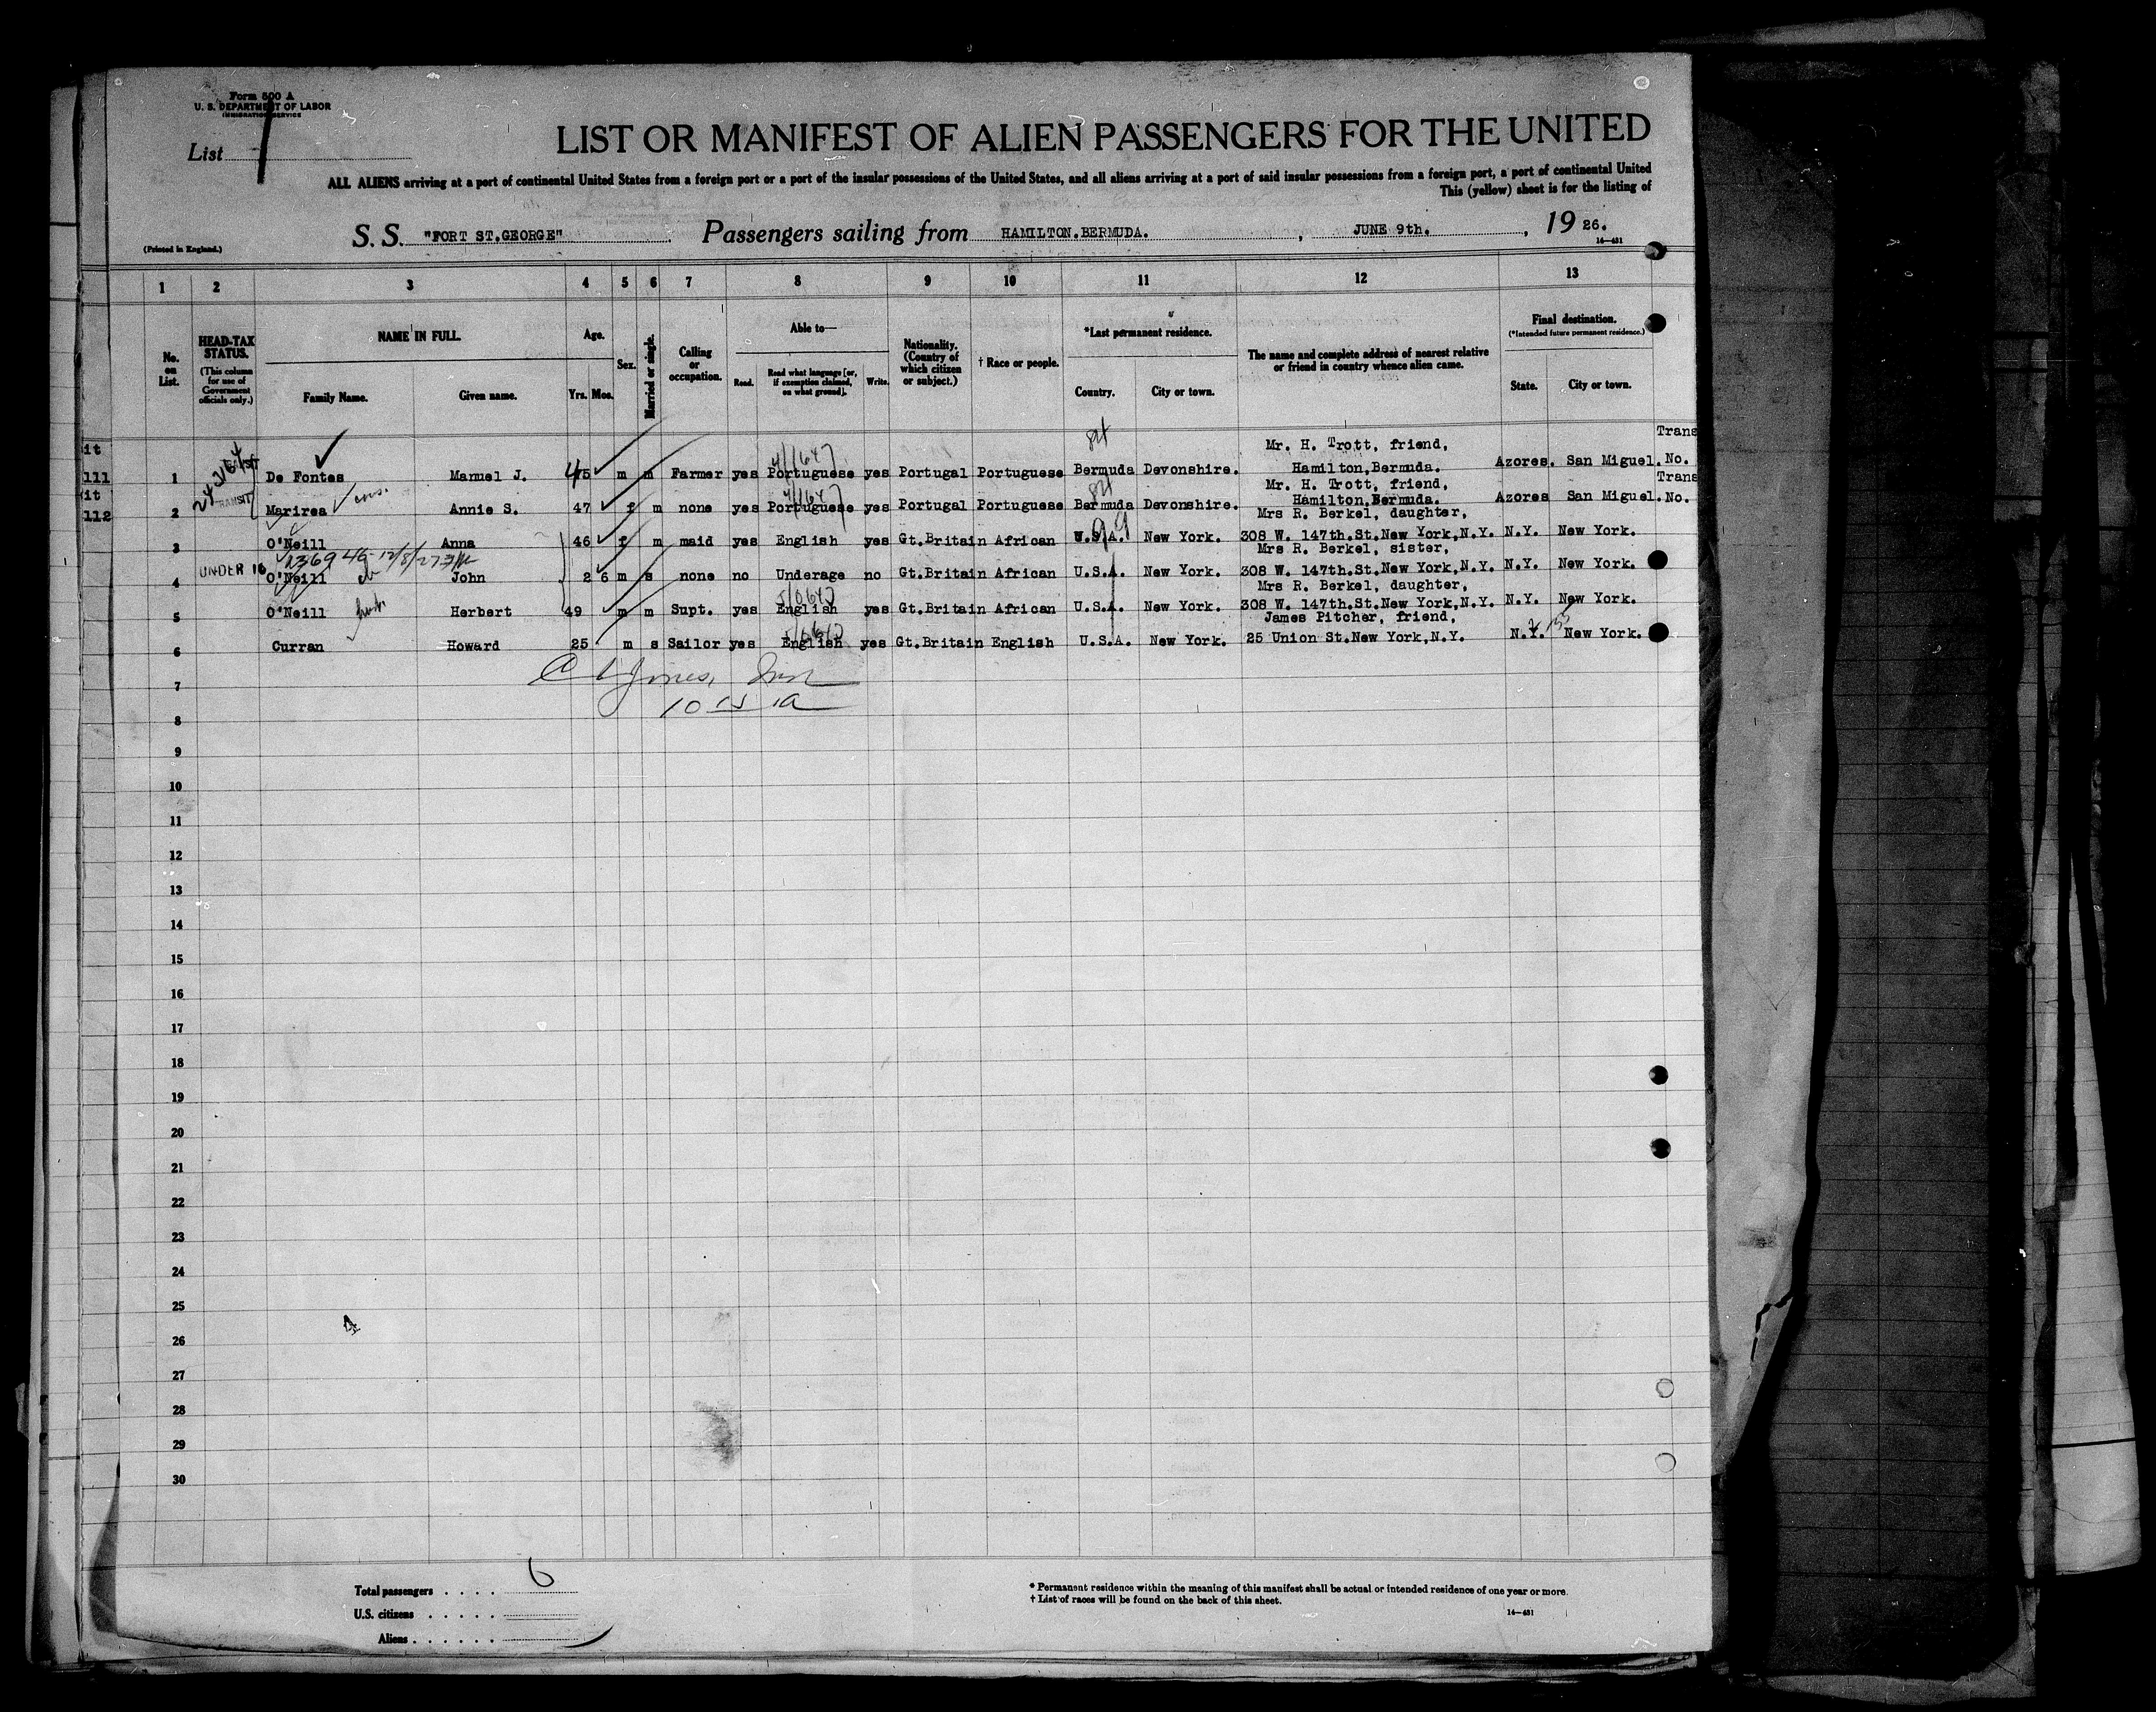 Form 500 A
U. S. DEPARTMENT OF LABOR
IMMIGRATION SERVICE
List 1
LIST OR MANIFEST OF ALIEN PASSENGERS FOR THE UNITED
ALL ALIENS arriving at a port of continental United States from a foreign port or a port of the insular possessions of the United States, and all aliens arriving at a port of said insular possessions from a foreign port, a port of continental United
This (yellow) sheet is for the listing of
(Printed in England.)
S. S. "FORT ST.GEORGE" Passengers sailing from HAMILTON.BERMUDA. , JUNE 9th. , 19 26.
14—431
1 2 3 4 5 6 7 8 9 10 11 12 13
No. on List.
HEAD-TAX STATUS.
(This column for use of Government officials only.)
NAME IN FULL.
Family Name. Given name.
Age.
Yrs. Mos.
Sex.
Married or single.
Calling or occupation.
Able to—
Read. Read what language [or, if exemption claimed, on what ground]. Write.
Nationality. (Country of which citizen or subject.)
† Race or people.
*Last permanent residence.
Country. City or town.
The name and complete address of nearest relative or friend in country whence alien came.
Final destination.
(*Intended future permanent residence.)
State. City or town.
it Mr. H. Trott, friend, Trans
111 1 De Fontes Manuel J. 45 m m Farmer yes Portuguese yes Portugal Portuguese Bermuda Devonshire. Hamilton,Bermuda. Azores. San Miguel. No.
it TRANSIT Mr. H. Trott, friend, Trans
112 2 Marirea Annie S. 47 f m none yes Portuguese yes Portugal Portuguese Bermuda Devonshire. Hamilton,Bermuda. Azores San Miguel. No.
Mrs R. Berkel, daughter,
3 O'Neill Anna 46 f m maid yes English yes Gt.Britain African U.S.A. New York. 308 W. 147th.St.New York,N.Y. N.Y. New York.
Mrs R. Berkel, sister,
4 UNDER 16 O'Neill John 2 6 m s none no Underage no Gt.Britain African U.S.A. New York. 308 W. 147th.St.New York,N.Y. N.Y. New York.
Mrs R. Berkel, daughter,
5 O'Neill Herbert 49 m m Supt. yes English yes Gt.Britain African U.S.A. New York. 308 W. 147th.St.New York,N.Y. N.Y. New York.
James Pitcher, friend,
6 Curran Howard 25 m s Sailor yes English yes Gt.Britain English U.S.A. New York. 25 Union St.New York,N.Y. N.Y. New York.
7
8
9
10
11
12
13
14
15
16
17
18
19
20
21
22
23
24
25
26
27
28
29
30
4
Total passengers . . . . 6
U.S. citizens . . . . .
Aliens . . . . . .
* Permanent residence within the meaning of this manifest shall be actual or intended residence of one year or more.
† List of races will be found on the back of this sheet.
14—431